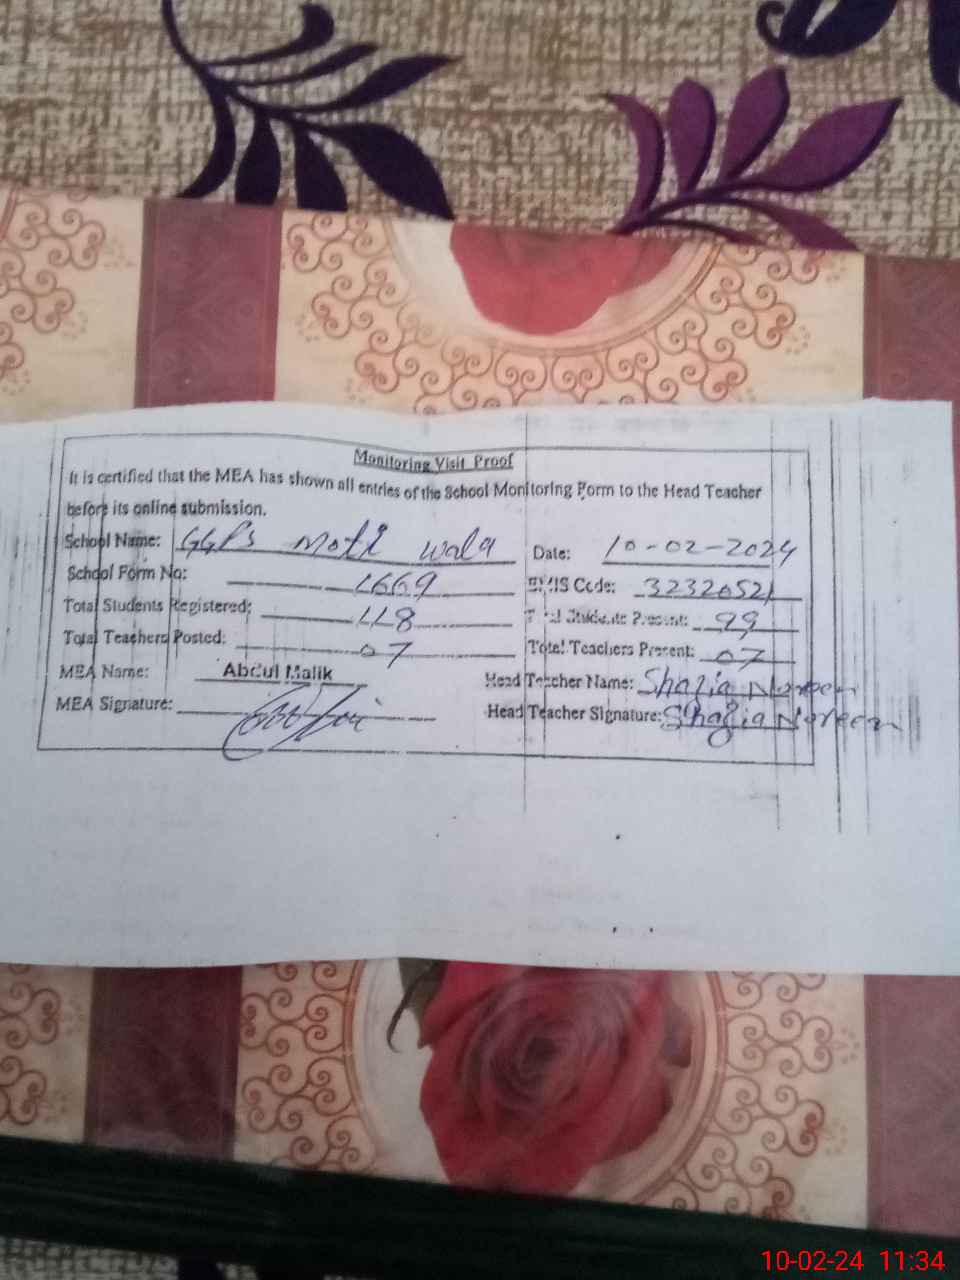 Monitoring Visit Proof
It is certified that the MEA has shown all entries of the School Monitoring Form to the Head Teacher
before its online submission.
School Name: GGPS Moti wala Date: 10-02-2024
School Form No: 1669 EMIS Code: 32320521
Total Students Registered: 118 Total Students Present: 99
Total Teachers Posted: 07 Total Teachers Present: 07
MEA Name: Abdul Malik Head Teacher Name: Shazia Noreen
MEA Signature: Head Teacher Signature: Shazia Noreen
10-02-24 11:34